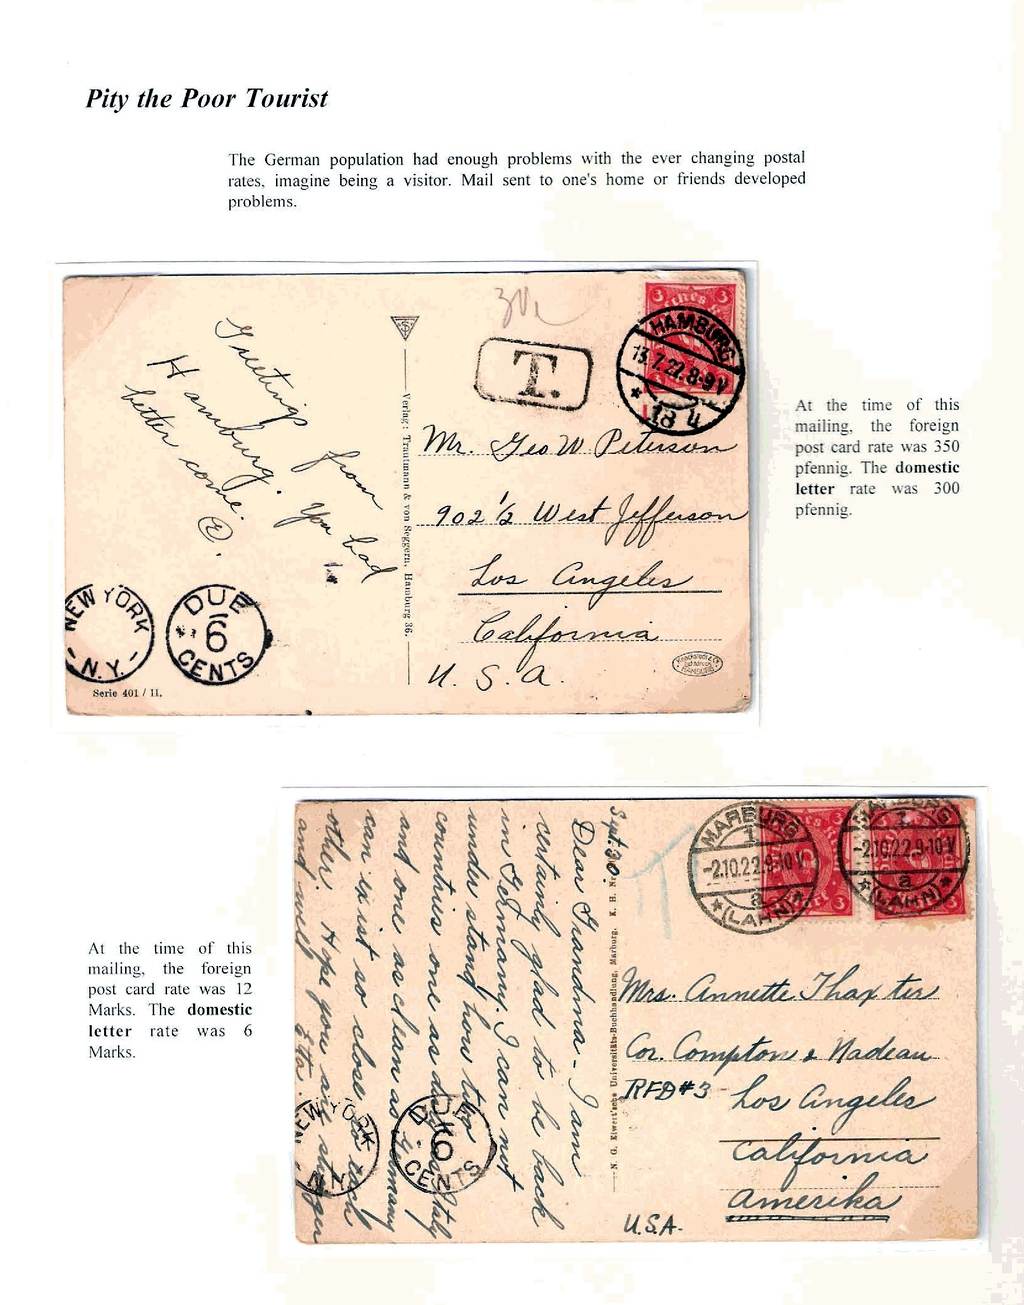 Pity the Poor Tourist
The German population had enough problems with the ever changing postal
rates, imagine being a visitor. Mail sent to one's home or friends developed
problems.
Greetings from
Hamburg. You had
better come.
E.
Verlag: Trautmann & von Seggern, Hamburg 36.
T.
3
HAMBURG
13.7.22.8-9V
* 18 u
Mr. Geo W. Peterson
902 1/2 West Jefferson
Los Angeles
California
U. S. A.
NEW YORK
N.Y.
DUE
6
CENTS
Serie 401 / 11.
At the time of this
mailing, the foreign
post card rate was 350
pfennig. The domestic
letter rate was 300
pfennig.
At the time of this
mailing, the foreign
post card rate was 12
Marks. The domestic
letter rate was 6
Marks.
Sept. 30.
Dear Grandma - I am
certainly glad to be back
in Germany. I can not
understand how two
countries one as dirty as Italy
and one as clean as Germany
can exist so close to each
other. Hope you are stronger
and well
Etta.
N. G. Elwert'sche Universitäts-Buchhandlung, Marburg.
MARBURG
1
-2.10.22.9-10V
a
*(LAHN)*
MARBURG
1
-2.10.22.9-10V
a
*(LAHN)*
3
3
Mrs. Annette Thaxter
Cor. Compton & Nadeau
RFD #3 - Los Angeles
California
Amerika
U.S.A.
NEW YORK
N.Y.
DUE
CENTS